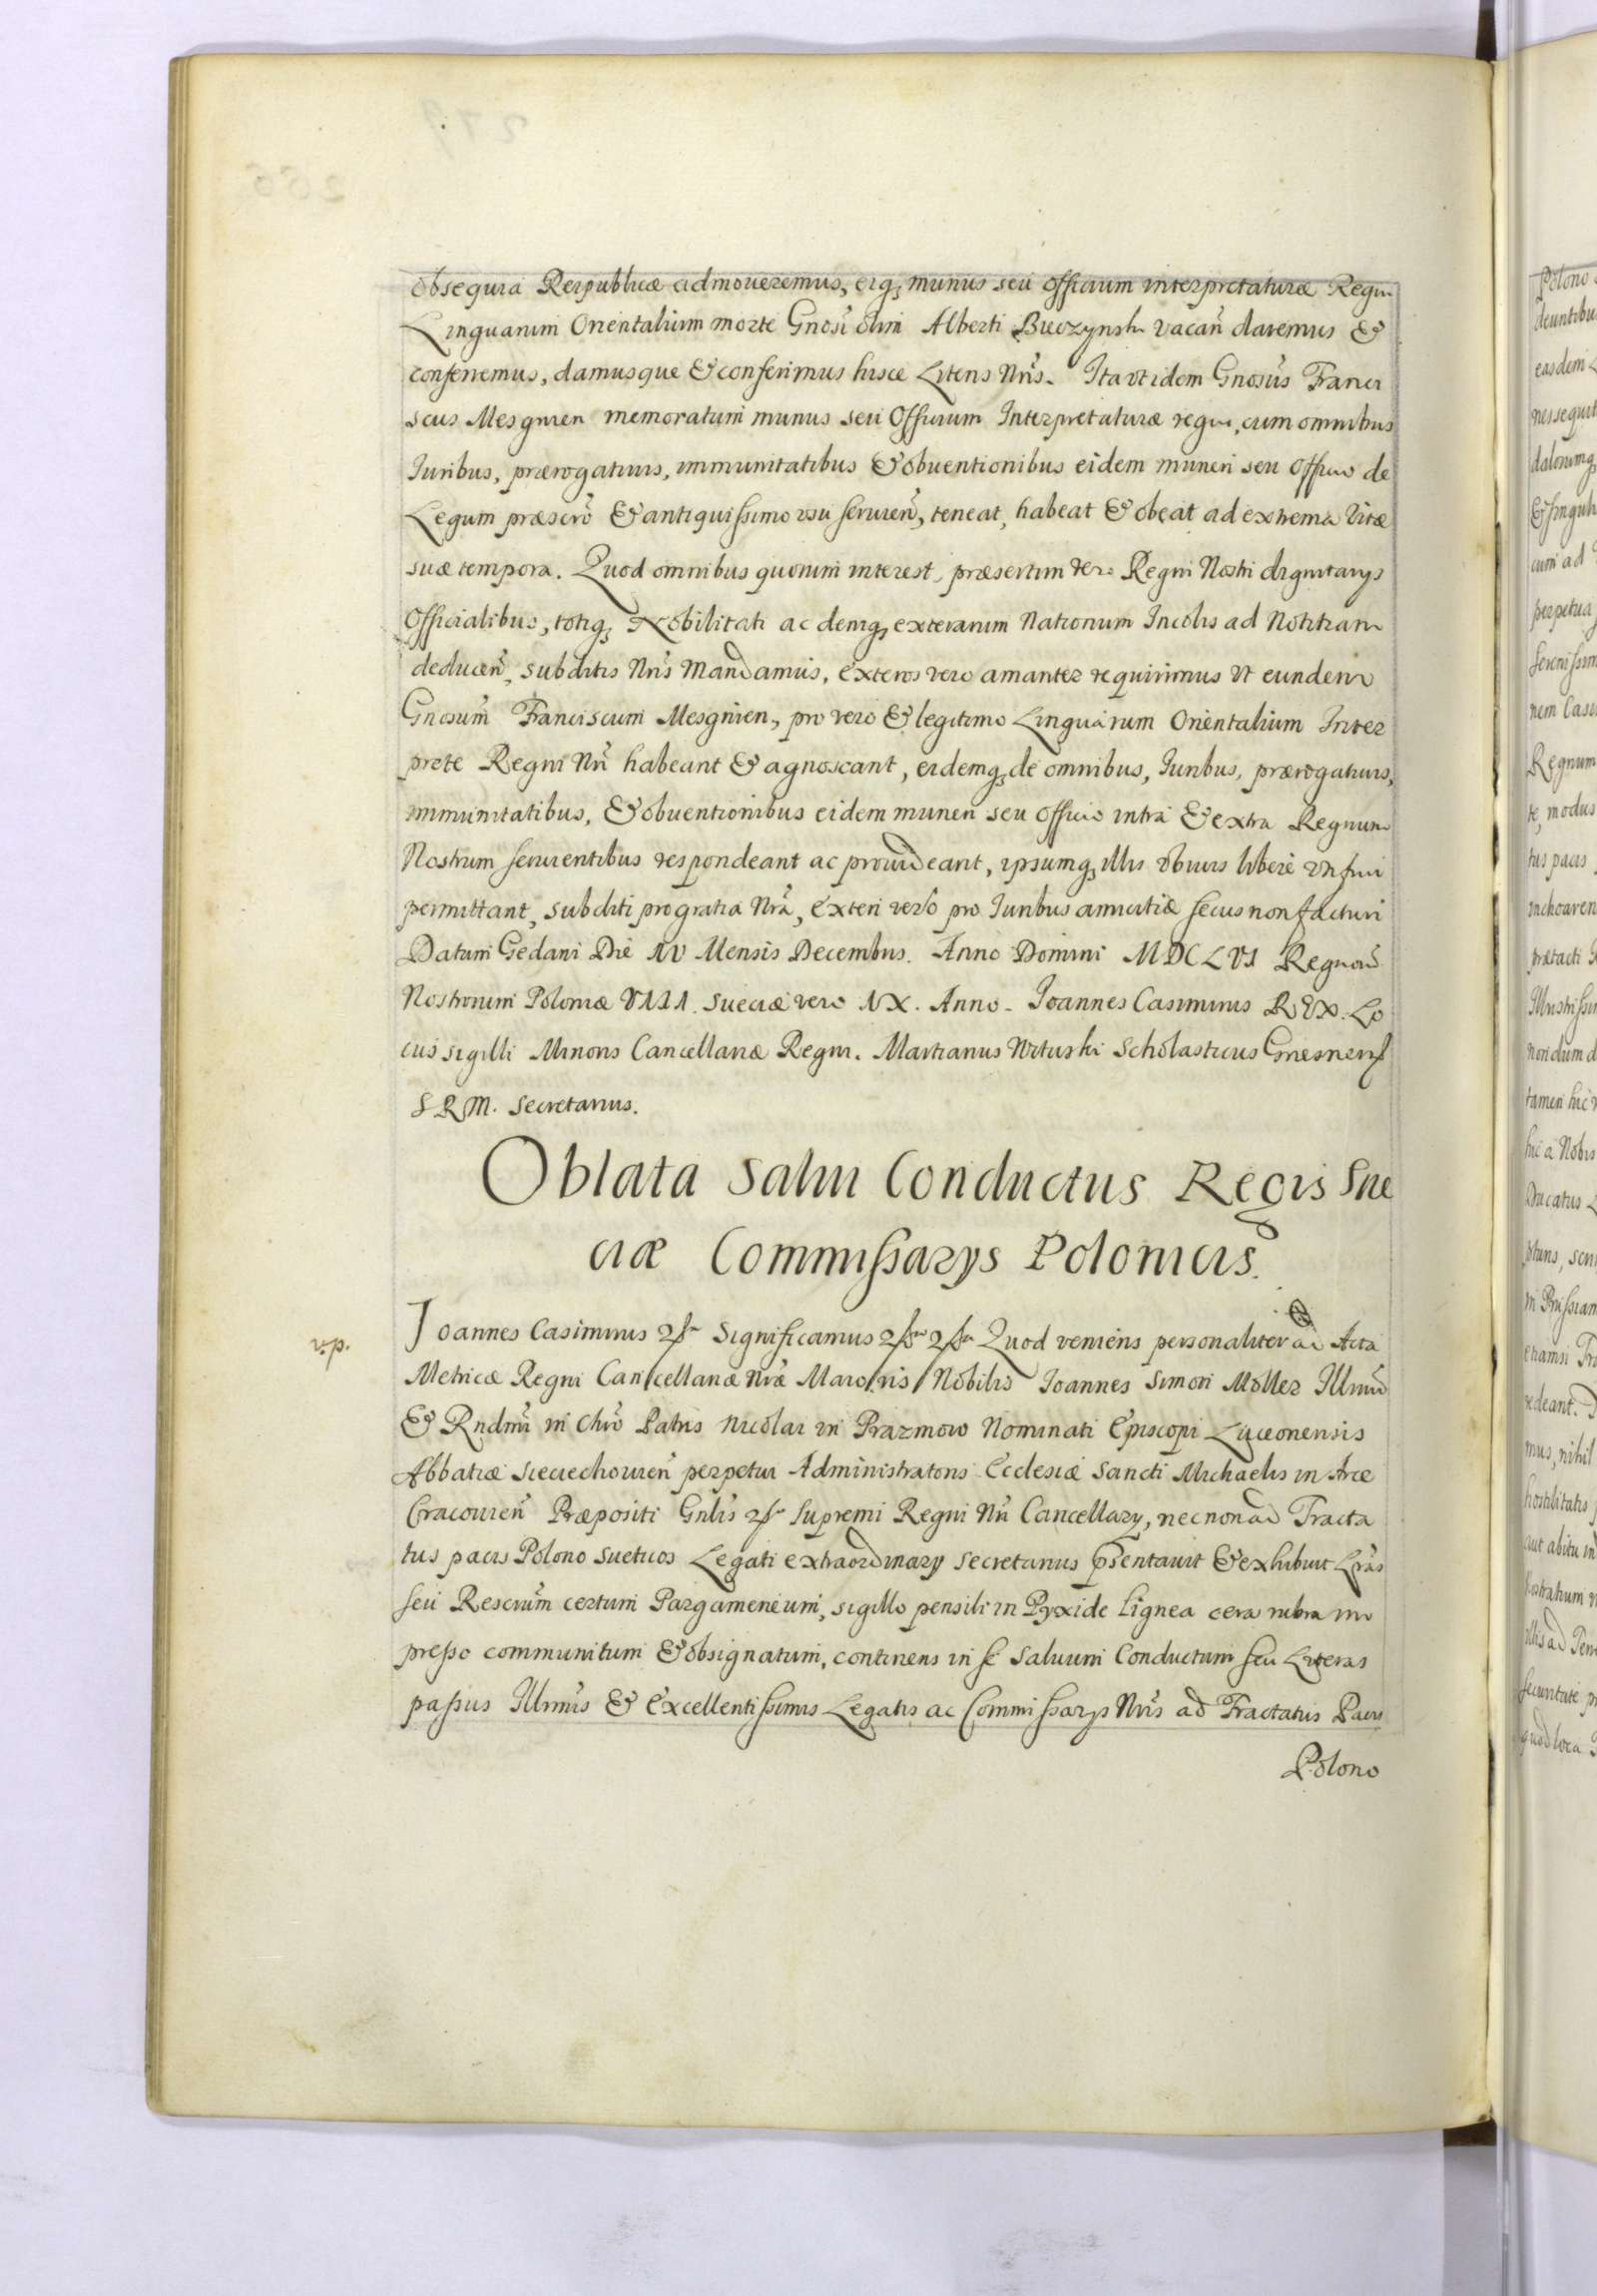 obsequia Reipublicæ admoueremus, eiq3 munus seu officium interpretaturæ Regni
Linguarum Orientalium morte Gnosi olim Alberti Bieczynski vacan̄ daremus &
conferremus, damusque & conferimus hisce Literis Nr̄is. Ita vt idem Gnosus Franci
scus Mesgnien memoratum munus seu Officium Interpretaturæ regni, cum omnibus
Iuribus, prærogatiuis, immunitatibus & obuentionibus eidem muneri seu officio de
Legum præscr̄o & antiquissimo vsu seruien̄, teneat, habeat & obeat ad extrema Vitæ
suæ tempora. Quod omnibus quorum interest, præsertim vero Regni Nostri dignitarys
Officialibus, totiq3 Nobilitati ac deniq3 exterarum Nationum Incolis ad Notitiam
deducen̄, subditis Nr̄is Mandamus, exteros vero amanter requirimus Vt eundem
Gnosum Franciscum Mesgnien, pro vero & legitimo Linguarum Orientalium Inter
prete Regni Nr̄i habeant & agnoscant, eidemq3 de omnibus, Iuribus, prærogatiuis,
immunitatibus, & obuentionibus eidem muneri seu officio intra & extra Regnum
Nostrum seruientibus respondeant ac prouideant, ipsumq3 illis vti frui
permittant, subditi pro gratia Nr̄a, exteri vero pro Iuribus amicitiæ secus non facturi
Datum Gedani Die IV Mensis Decembris. Anno Domini MDCLVI Regnorū
Nostrorum Poloniæ VIII. Sueciæ vero IX. Anno. Ioannes Casimirus REX. Lo
cus sigilli Minoris Cancellariæ Regni. Martianus Scholasticus Gnesnens
S R M. Secretarius.
Oblata Salui Conductus Regis Sue
ciæ Commissarys Polonicis.
Ioannes Casimirus Significamus Quod veniens personaliter ad Acta
Metricæ Regni Cancellariæ Nr̄æ Maioris Nobilis Ioannes Simon Moller Illmi
& Rndmi in Chr̄o Patris Nicolai in Prazmow Nominati Episcopi Luceonensis
Abbatiæ Sieciechouien̄ perpetui Administratoris Ecclesiæ Sancti Michaelis in Arce
Cracouien̄ Præpositi Gnlis Supremi Regni Nr̄i Cancellary, necnon ad Tracta
tus pacis Polono Sueticos Legati extraordinary Secretarius pr̄sentauit & exhibuit Lr̄as
seu Rescr̄um certum Pargameneum, sigillo pensili in Pyxide Lignea cera rubra im
presso communitum & obsignatum, continens in se Saluum Conductum seu Literas
passus Illmis & Excellentissimis Legatis ac Commissarys Nr̄is ad Tractatus Pacis
Polono